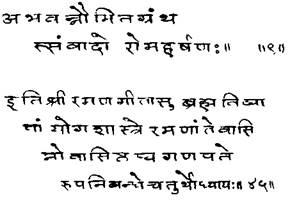 अभवन्नौमितग्रंथ
स्संवादो रोमहर्षणः॥ ॥९॥
इति श्रीरमणगीतासु ब्रह्मविद्या
यां योगशास्त्रे रमणांतेवासि
नो वासिष्ठस्य गणपते
रुपनिबन्धे चतुर्थोध्यायः॥ ४५॥